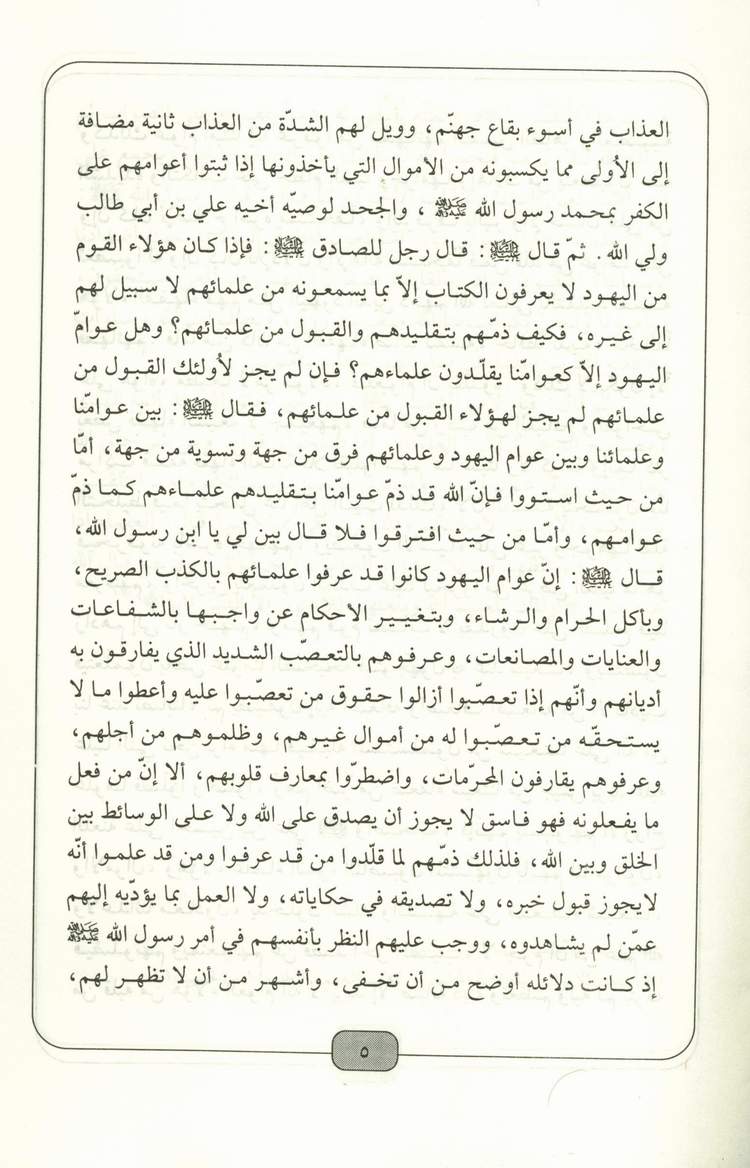 العذاب في أسوء بقاع جهنّم، وويل لهم الشدّة من العذاب ثانية مضافة
إلى الأولى مما يكسبونه من الأموال التي يأخذونها إذا ثبتوا أعوامهم على
الكفر بمحمد رسول الله ﷺ ، والجحد لوصيّه أخيه علي بن أبي طالب
ولي الله. ثمّ قال عليه السلام : قال رجل للصادق عليه السلام : فإذا كان هؤلاء القوم
من اليهود لا يعرفون الكتاب إلاّ بما يسمعونه من علمائهم لا سبيل لهم
إلى غيره، فكيف ذمّهم بتقليدهم والقبول من علمائهم؟ وهل عوامّ
اليهود إلاّ كعوامّنا يقلّدون علماءهم؟ فإن لم يجز لأولئك القبول من
علمائهم لم يجز لهؤلاء القبول من علمائهم، فقال عليه السلام : بين عوامّنا
وعلمائنا وبين عوام اليهود وعلمائهم فرق من جهة وتسوية من جهة، أمّا
من حيث استووا فإنّ الله قد ذمّ عوامّنا بتقليدهم علماءهم كما ذمّ
عوامهم، وأمّا من حيث افترقوا فلا قال بين لي يا ابن رسول الله،
قال عليه السلام : إنّ عوام اليهود كانوا قد عرفوا علمائهم بالكذب الصريح،
وبأكل الحرام والرشاء، وبتغيير الاحكام عن واجبها بالشفاعات
والعنايات والمصانعات، وعرفوهم بالتعصّب الشديد الذي يفارقون به
أديانهم وأنّهم إذا تعصّبوا أزالوا حقوق من تعصّبوا عليه وأعطوا ما لا
يستحقّه من تعصّبوا له من أموال غيرهم، وظلموهم من أجلهم،
وعرفوهم يقارفون المحرّمات، واضطرّوا بمعارف قلوبهم، ألا إنّ من فعل
ما يفعلونه فهو فاسق لا يجوز أن يصدق على الله ولا على الوسائط بين
الخلق وبين الله، فلذلك ذمّهم لما قلّدوا من قد عرفوا ومن قد علموا أنّه
لايجوز قبول خبره، ولا تصديقه في حكاياته، ولا العمل بما يؤدّيه إليهم
عمّن لم يشاهدوه، ووجب عليهم النظر بأنفسهم في أمر رسول الله ﷺ
إذ كانت دلائله أوضح من أن تخفى، وأشهر من أن لا تظهر لهم،
٥